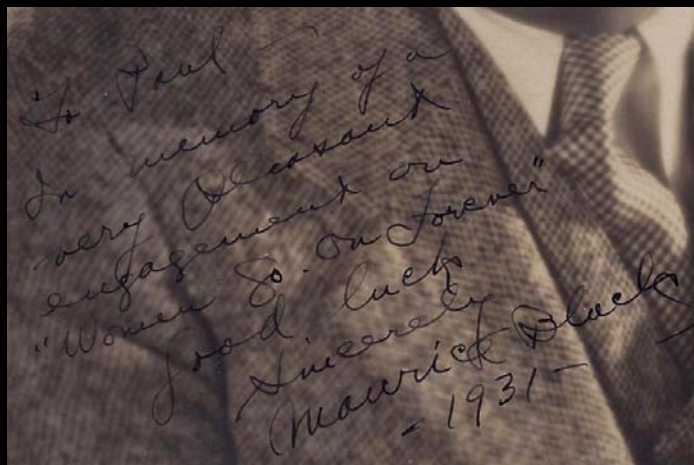 To Paul –
In memory of a
very pleasant
engagement on
"Women Go. On Forever"
Good luck
Sincerely
Maurice Black
- 1931 -